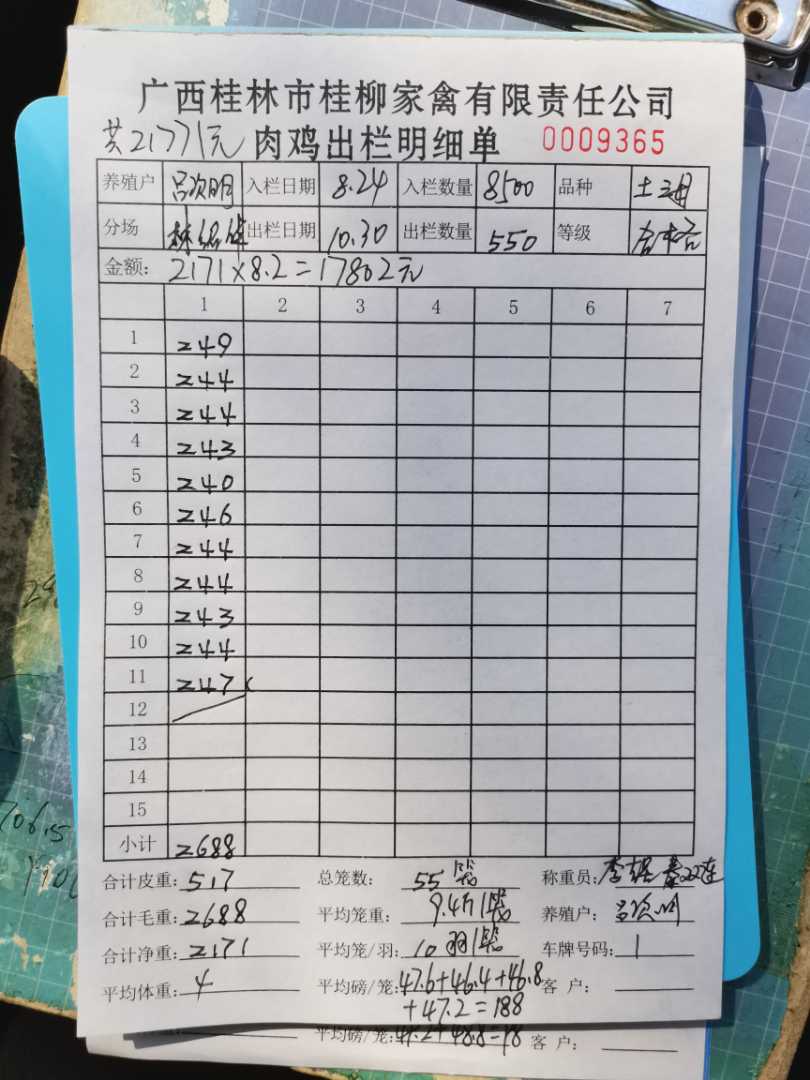 广西桂林市桂柳家禽有限责任公司
共21771元 肉鸡出栏明细单 0009365
养殖户 吕次明 入栏日期 8.24 入栏数量 8500 品种 土
分场 林 出栏日期 10.30 出栏数量 550 等级 合格
金额: 2171×8.2=17802元
1 2 3 4 5 6 7
1 249
2 244
3 244
4 243
5 240
6 246
7 244
8 244
9 243
10 244
11 247
12
13
14
15
小计 2688
合计皮重: 517 总笼数: 55笼 称重员: 李
合计毛重: 2688 平均笼重: 9.4斤/笼 养殖户: 吕次明
合计净重: 2171 平均笼/羽: 10羽/笼 车牌号码: 1
平均体重: 4 平均磅/笼: 47.6+46.4+46.8 客 户:
+47.2=188
平均磅/笼: 客 户: